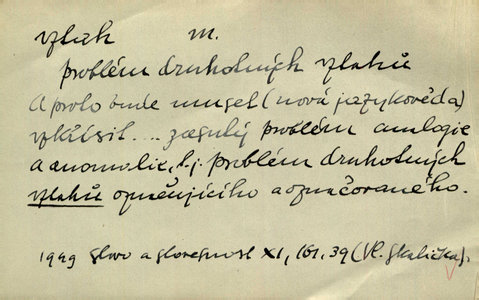 vztah m.
problém druhotných vztahů
A proto bude muset (nová jazykověda)
vzkřísit.... zasutý problém analogie
a anomalie, t.j. problém druhotných
vztahů označujícího a označovaného.
1949 Slovo a slovesnost XI, 161.39 (Vl. Skalička).